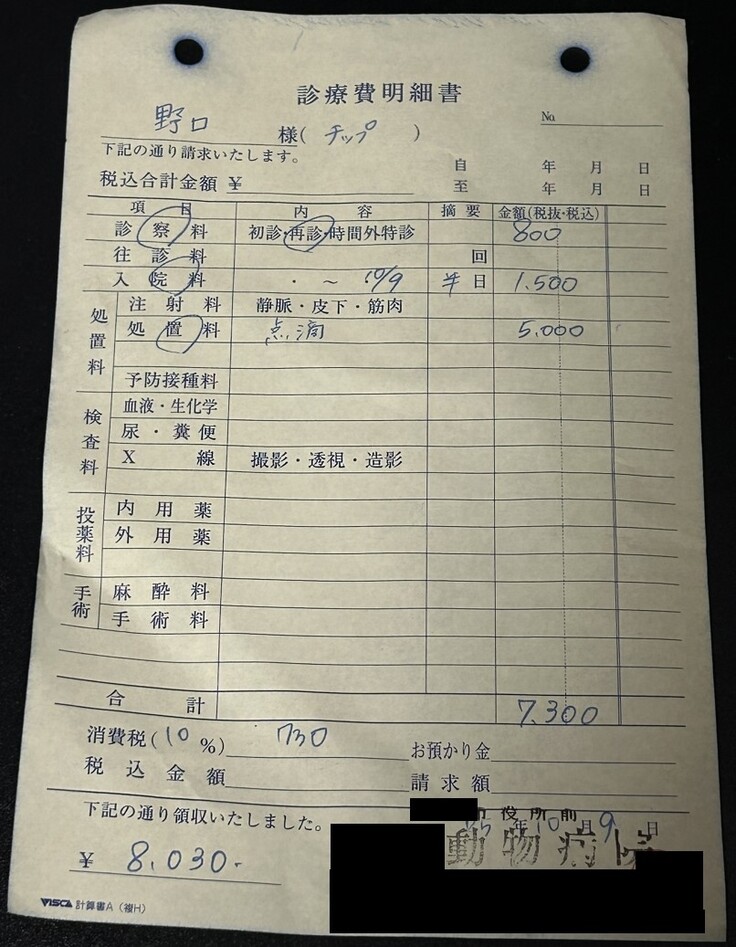 診療費明細書
No.
野口 様(チップ)
下記の通り請求いたします。
自 年 月 日
税込合計金額 ¥
至 年 月 日
項目 内容 摘要 金額(税抜・税込)
診察料 初診・再診・時間外特診 800
往診料 回
入院料 ・ ~ 10/9 半日 1.500
処置料
注射料 静脈・皮下・筋肉
処置料 点滴 5.000
予防接種料
検査料
血液・生化学
尿・糞便
X線 撮影・透視・造影
投薬料
内用薬
外用薬
手術
麻酔料
手術料
合計 7.300
消費税(10%) 730 お預かり金
税込金額 請求額
下記の通り領収いたしました。
市役所前
年10月9日
動物病院
¥ 8.030-
VISCA 計算書A(複H)